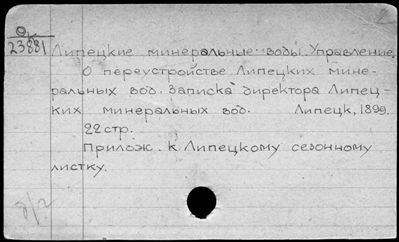 О/к
23881
Липецкие минеральные воды. Управление.
О переустройстве Липецких мине-
ральных вод. Записка директора Липец-
ких минеральных вод. Липецк, 1899.
22 стр.
Прилож. к Липецкому сезонному
листку.